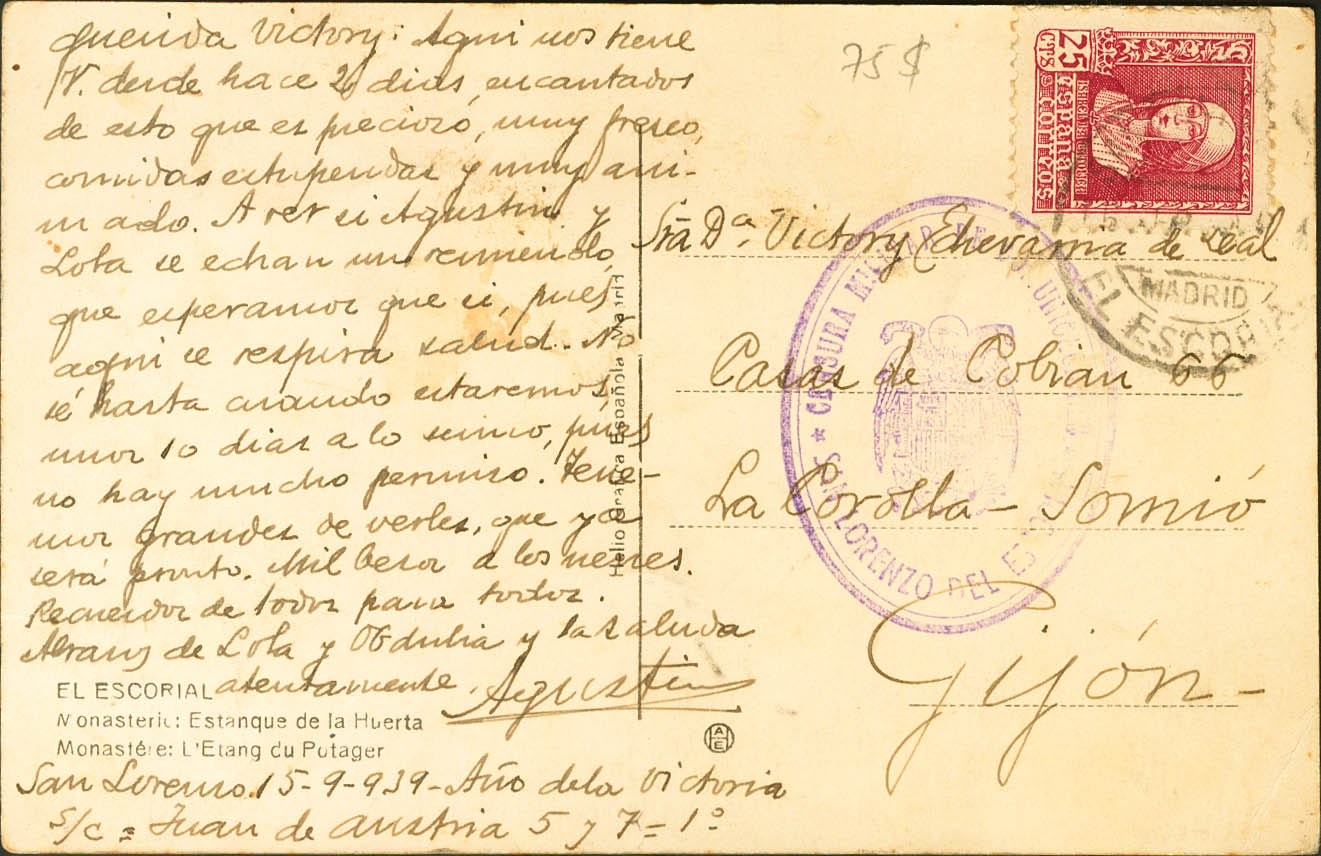 Querida Victory: Aqui nos tiene
V. desde hace 2 dias, encantados
de esto que es precioso, muy fresco,
comidas estupendas y muy ani-
mado. A ver si Agustin y
Lola se echan un remiendo,
que esperamos que si, pues
aqui se respira salud. No
sé hasta cuando estaremos,
unos 10 dias a lo sumo, pues
no hay mucho permiso. Tene-
mos grandes de verles, que ya
será pronto. Mil besos a los nenes.
Recuerdos de todos para todos.
de Lola y Obdulia y la saluda
atentamente, Agustin
EL ESCORIAL
Monasterio: Estanque de la Huerta
Monastére: L'Etang du Potager
San Lorenzo 15-9-939-Año de la Victoria
s/c = Juan de Austria 5 y 7 = 1º
Helio Gráfica Española Madrid
AE
75 $
25 CTS
ESPAÑA
CORREOS
ISABEL
MADRID
EL ESCORIAL
CENSURA MILITAR
SAN LORENZO DEL ESCORIAL
Sra Dª. Victory Echevarria de Leal
Casas de Cobian 66
La Corolla - Somió
Gijón -